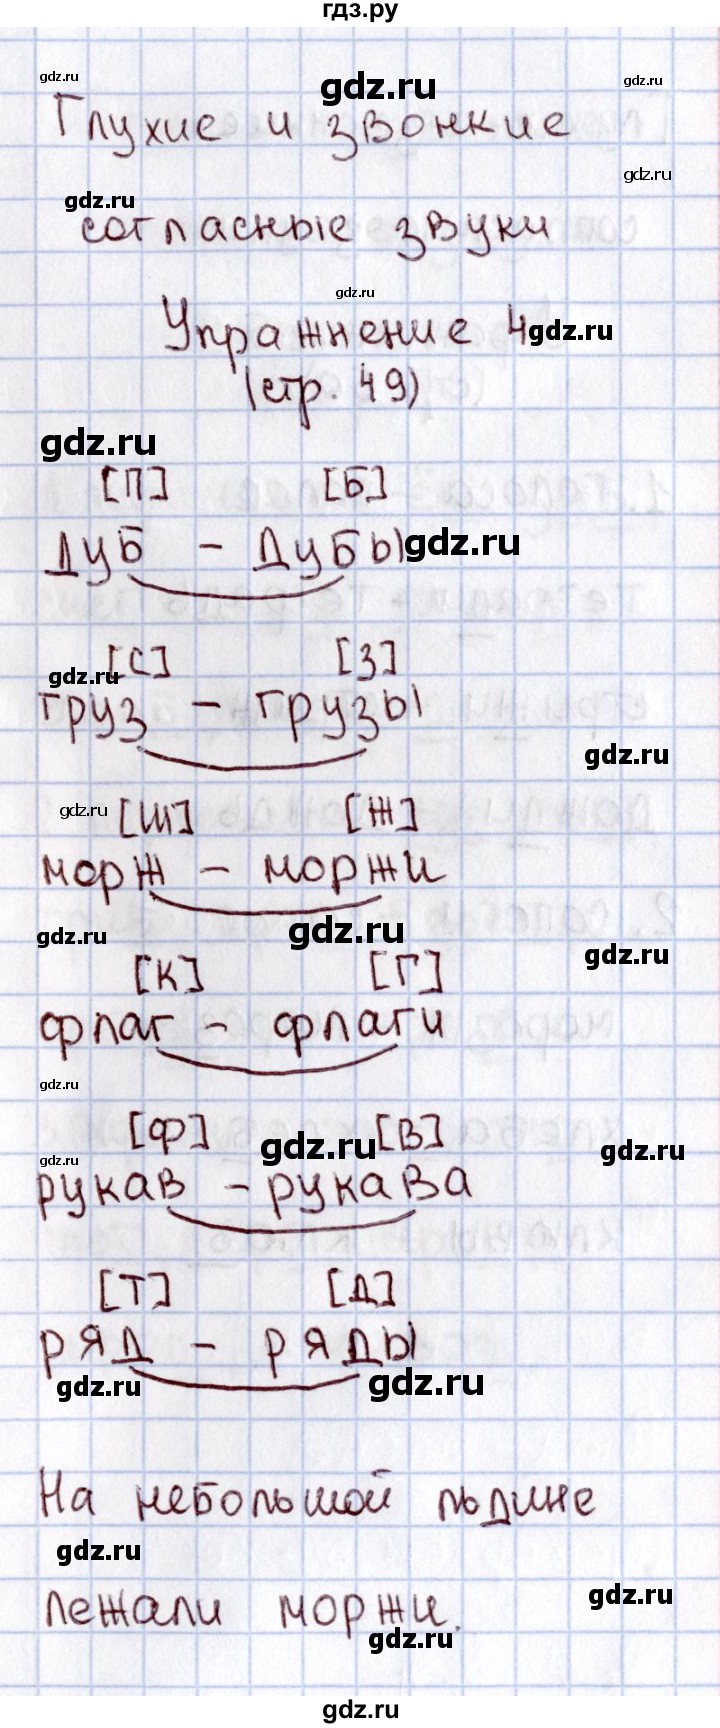 гдз.ру
gdz.ru gdz.ru gdz.ru
Глухие и звонкие
gdz.ru
gdz.ru
согласные звуки
gdz.ru
Упражнение 4 gdz.ru
(стр. 49)
gdz.ru
[П] [Б]
дуб - дубы gdz.ru
gdz.ru [С] [З]
груз - грузы
gdz.ru
gdz.ru [Ш] [Ж]
морж - моржи
gdz.ru gdz.ru
gdz.ru
[К] [Г]
флаг - флаги
gdz.ru
[Ф] gdz.ru [В] gdz.ru
gdz.ru
рукав - рукава
[Т] [Д]
ряд - ряды
gdz.ru gdz.ru
На небольшой льдине
gdz.ru
gdz.ru
лежали моржи.
gdz.ru
gdz.ru